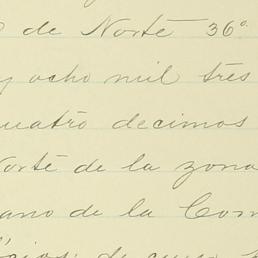 de Norte 36°
y ocho mil tres
cuatro decimos
Norte de la zona
ano de la Com
de